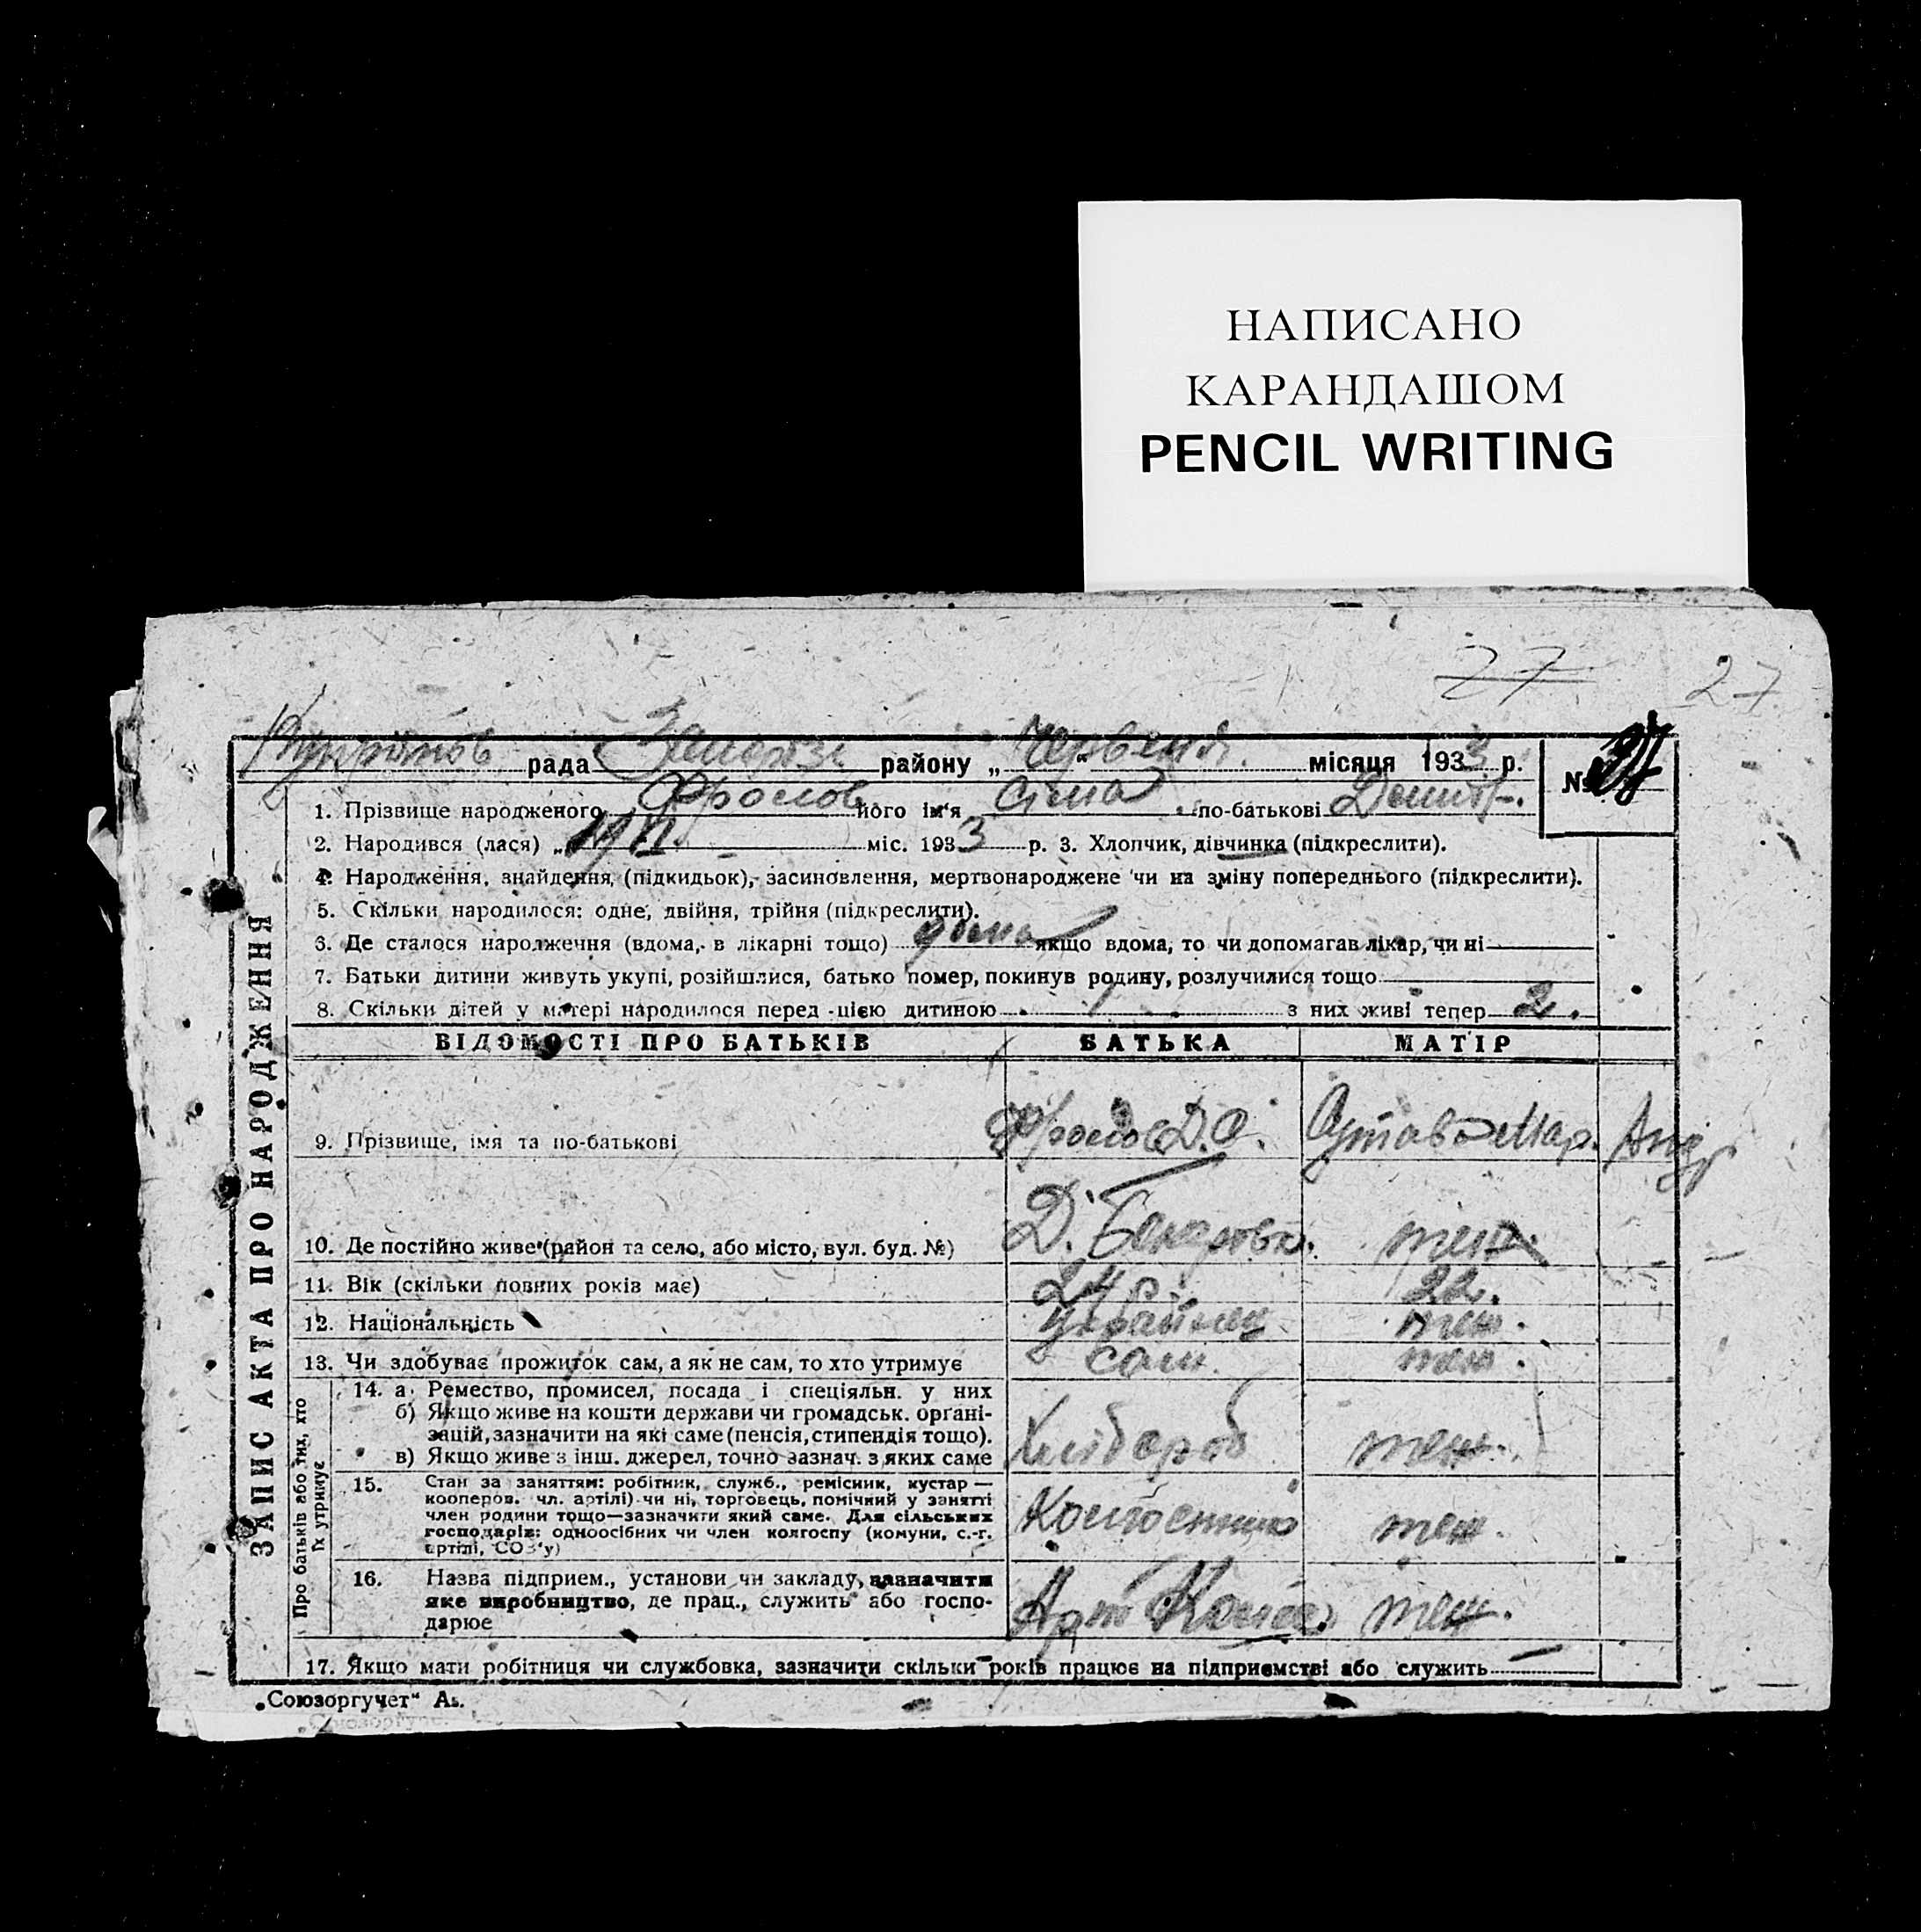 НАПИСАНО
КАРАНДАШОМ
PENCIL WRITING
27 27
рада району „ “ Червень місяця 1933 р. №
1. Прізвище народженого Фролов його ім'я по-батькові
2. Народився (лася) „ міс. 1933 р. 3. Хлопчик, дівчинка (підкреслити).
4. Народження, знайдення, (підкидьок), засиновлення, мертвонароджене чи на зміну попереднього (підкреслити).
5. Скільки народилося: одне, двійня, трійня (підкреслити).
6. Де сталося народження (вдома, в лікарні тощо) дома якщо вдома, то чи допомагав лікар, чи ні
7. Батьки дитини живуть укупі, розійшлися, батько помер, покинув родину, розлучилися тощо
8. Скільки дітей у матері народилося перед цією дитиною 1 з них живі тепер 2.
ВІДОМОСТІ ПРО БАТЬКІВ БАТЬКА МАТІР
9. Прізвище, імя та по-батькові Фролов Д.
10. Де постійно живе (район та село, або місто, вул. буд. №) теж
11. Вік (скільки повних років має) 24 р. 22.
12. Національність Українец теж.
13. Чи здобуває прожиток сам, а як не сам, то хто утримує сам. теж.
14. а. Ремество, промисел, посада і спеціяльн. у них
б) Якщо живе на кошти держави чи громадськ. органі-
зацій, зазначити на які саме (пенсія, стипендія тощо).
в) Якщо живе з інш. джерел, точно зазнач. з яких саме Хлібороб теж.
15. Стан за заняттям: робітник, служб., ремісник, кустар —
кооперов. чл. артілі) чи ні, торговець, помічний у занятті
член родини тощо—зазначити який саме. Для сільських
господарів: одноосібних чи член колгоспу (комуни, с.-г.
артілі, СОЗ'у) теж.
16. Назва підприєм., установи чи закладу, зазначити
яке виробництво, де прац., служить або госпо-
дарюе теж.
17. Якщо мати робітниця чи службовка, зазначити скільки років працює на підприємстві або служить —
ЗАПИС АКТА ПРО НАРОДЖЕННЯ
Про батьків або тих, хто
їх утримує
„Союзоргучет“